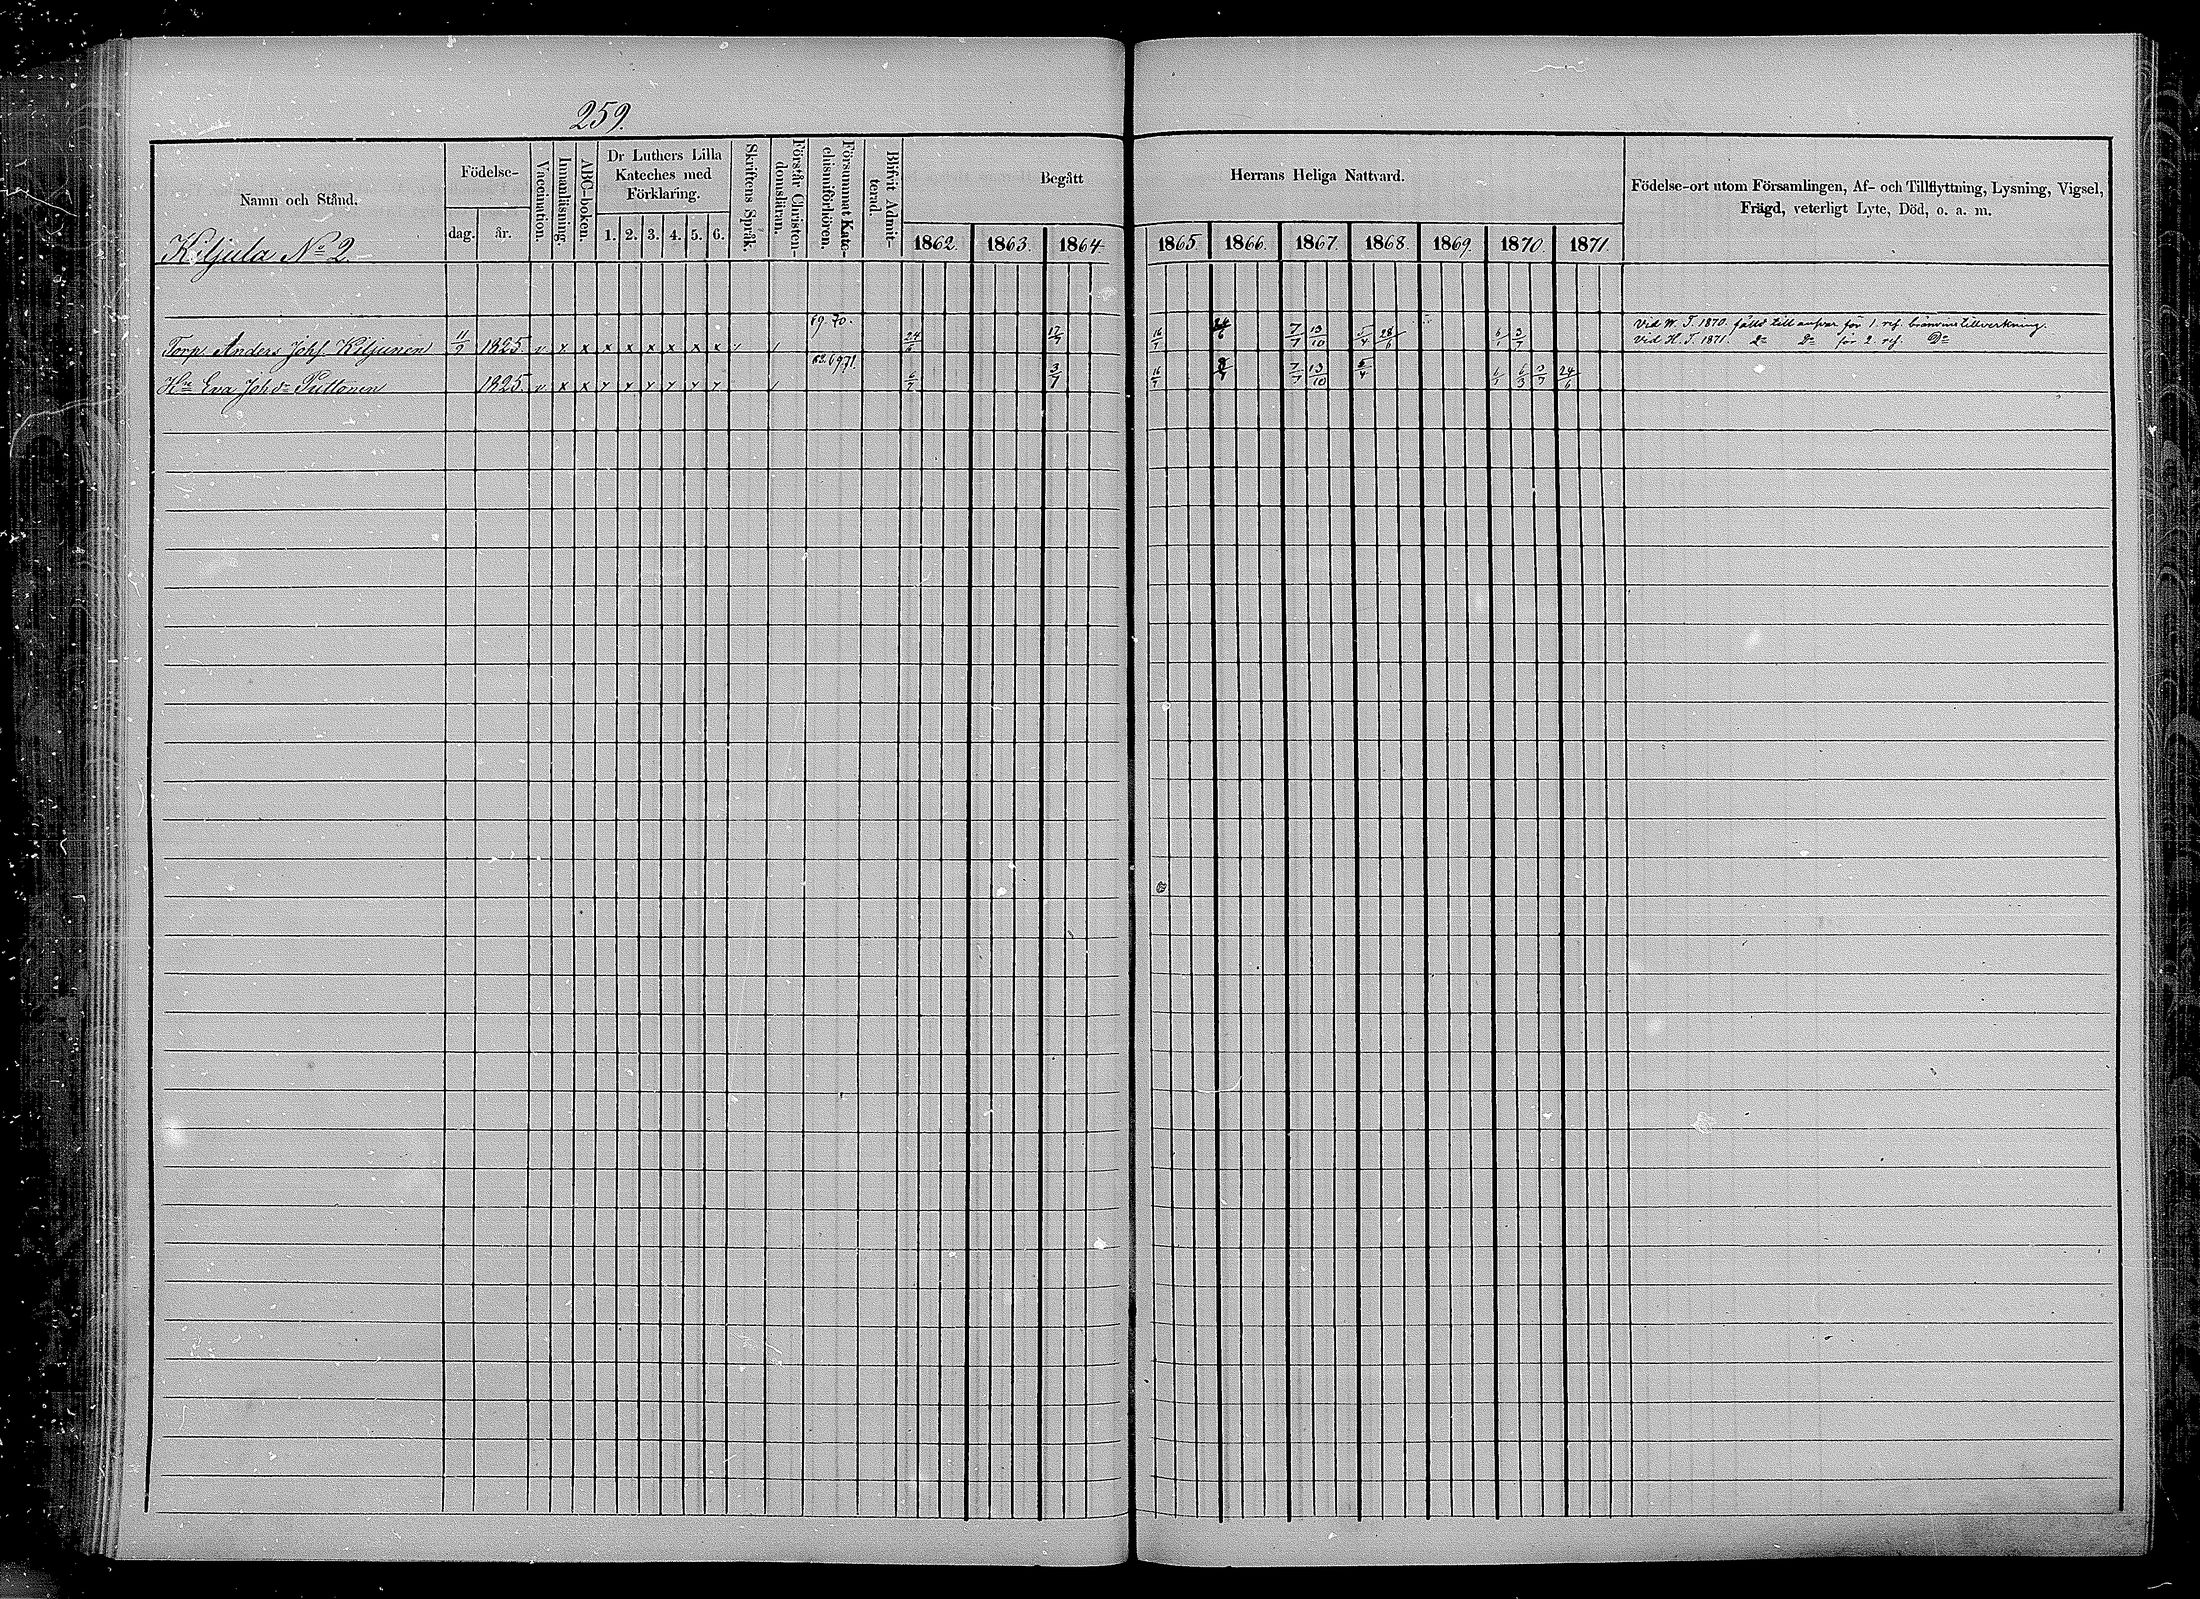 259.
Namn och Stånd.
Födelse-
dag.
år.
Vaccination.
Innanläsning.
ABC-boken.
Dr Luthers Lilla
Kateches med
Förklaring.
1. 2. 3. 4. 5. 6.
Skriftens Språk.
Förstår Christen-
domsläran.
Försummat Kate-
chismiförhören.
Blifvit Admit-
terad.
Begått
Herrans Heliga Nattvard.
1862. 1863. 1864. 1865. 1866. 1867. 1868. 1869. 1870 1871
Födelse-ort utom Församlingen, Af- och Tillflyttning, Lysning, Vigsel,
Frägd, veterligt Lyte, Död, o. a. m.
Kiljula No 2
69. 70.
Torp. Anders Johs. Kiljunen 11/9 1825. v x x x x x x x x 24/6 17/7 16/7 24/6 7/7 13/10 5/4 28/6 6/1 3/7
Vid W. T. 1870. fälld till ansvar för 1. ref. bränvinstillverkning.
Vid H. T. 1871. Do Do för 2. ref. Do
62. 69. 71.
Hu Eva Johsdr 1825. v x x 6/7 3/7 16/7 7/7 13/10 5/4 6/1 6/3 3/7 24/6